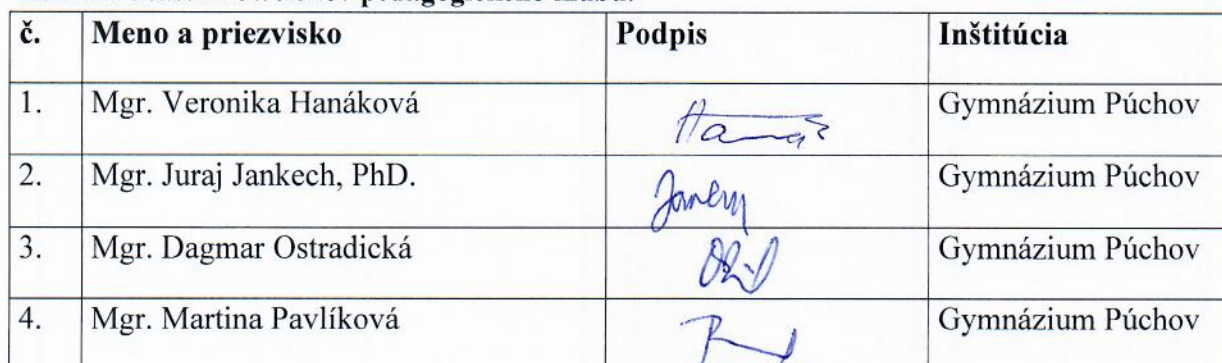 pedagogického klubu.
č. Meno a priezvisko Podpis Inštitúcia
1. Mgr. Veronika Hanáková Gymnázium Púchov
2. Mgr. Juraj Jankech, PhD. Gymnázium Púchov
3. Mgr. Dagmar Ostradická Gymnázium Púchov
4. Mgr. Martina Pavlíková Gymnázium Púchov